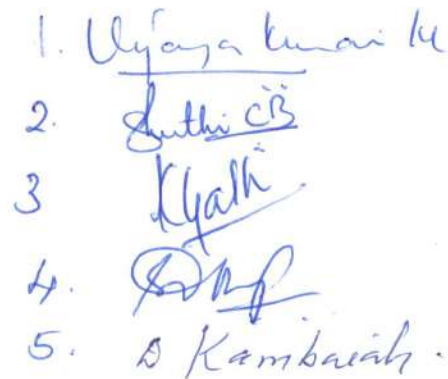 1. Vijaya Kumari K
2. Shruthi CB
3 Khyathi
4.
5. D Kambaiah.